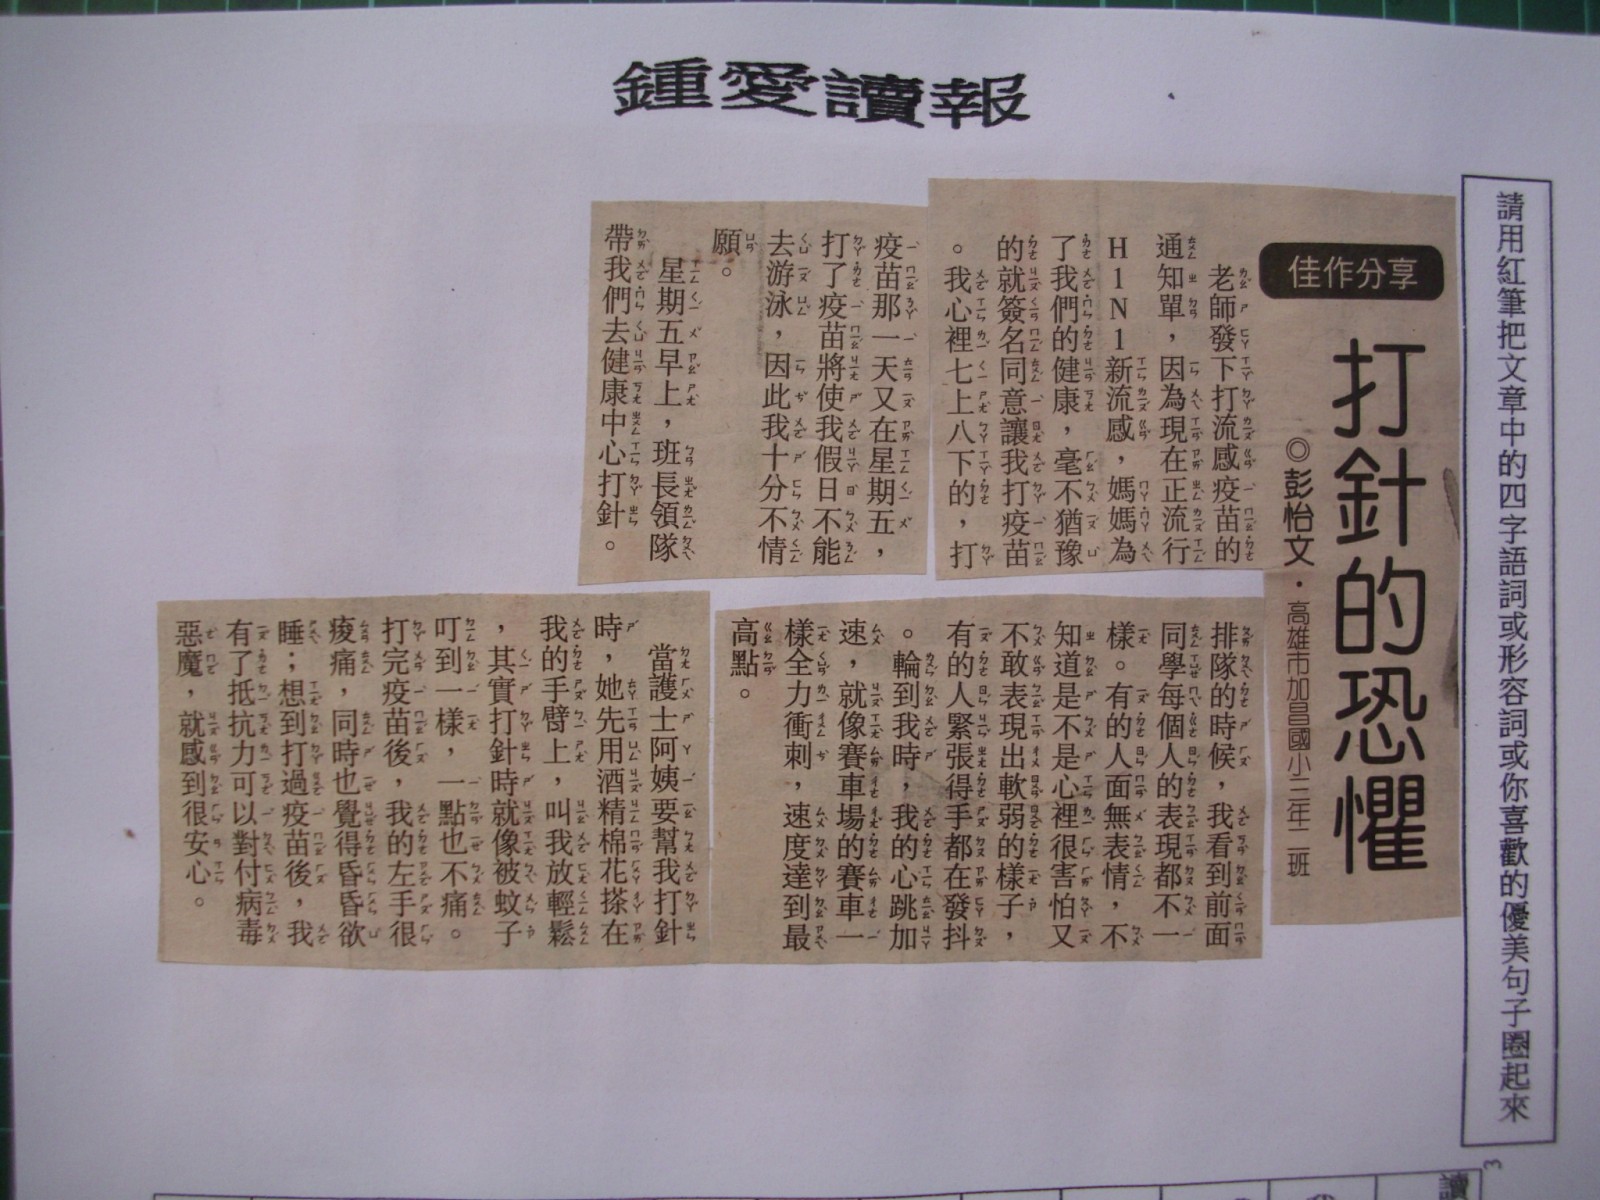 鍾愛讀報
請用紅筆把文章中的四字語詞或形容詞或你喜歡的優美句子圈起來
佳作分享
打針的恐懼
◎彭怡文・高雄市加昌國小三年二班
老師發下打流感疫苗的
通知單，因為現在正流行
H1N1新流感，媽媽為
了我們的健康，毫不猶豫
的就簽名同意讓我打疫苗
。我心裡七上八下的，打
疫苗那一天又在星期五，
打了疫苗將使我假日不能
去游泳，因此我十分不情
願。
星期五早上，班長領隊
帶我們去健康中心打針。
排隊的時候，我看到前面
同學每個人的表現都不一
樣。有的人面無表情，不
知道是不是心裡很害怕又
不敢表現出軟弱的樣子，
有的人緊張得手都在發抖
。輪到我時，我的心跳加
速，就像賽車場的賽車一
樣全力衝刺，速度達到最
高點。
當護士阿姨要幫我打針
時，她先用酒精棉花搽在
我的手臂上，叫我放輕鬆
，其實打針時就像被蚊子
叮到一樣，一點也不痛。
打完疫苗後，我的左手很
痠痛，同時也覺得昏昏欲
睡；想到打過疫苗後，我
有了抵抗力可以對付病毒
惡魔，就感到很安心。
3
讀